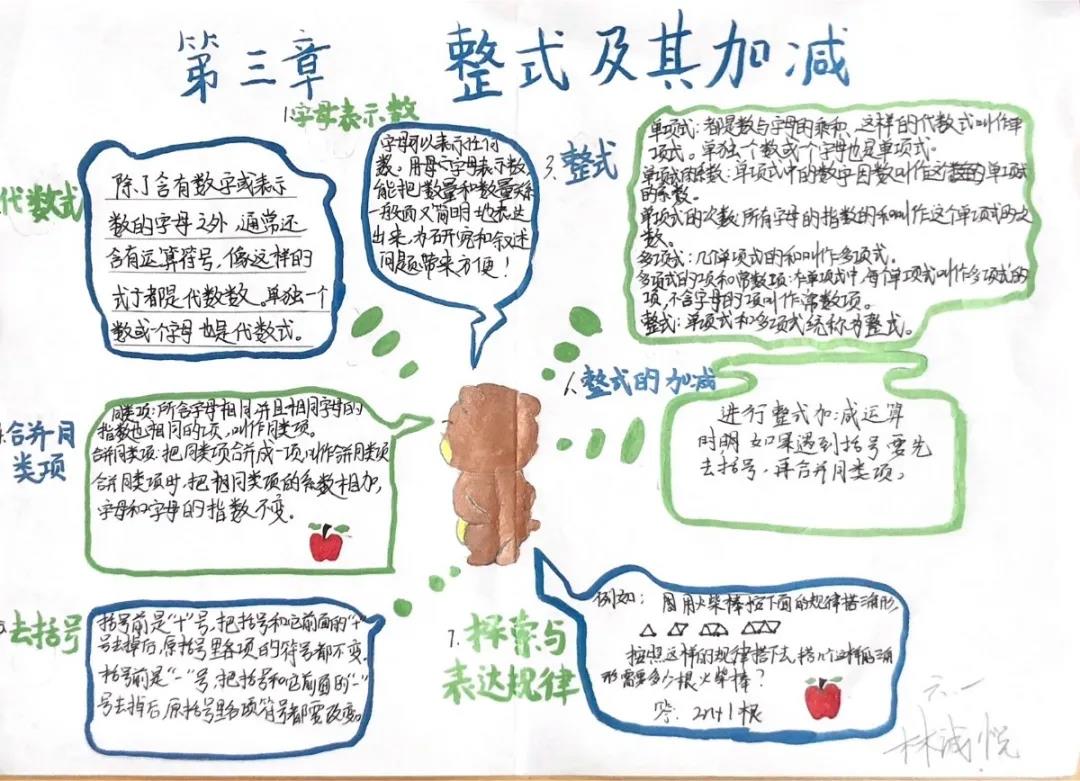 第三章 整式及其加减
1.字母表示数
字母可以表示任何
数。用母字母表示数,
能把数量和数量关系
一般而又简明地表达
出来,为研究和叙述
问题带来方便!
代数式
除了含有数字或表示
数的字母之外,通常还
含有运算符号,像这样的
式子都是代数数。单独一个
数或个字母也是代数式。
3.整式
单项式:都是数与字母的乘积,这样的代数式叫作单
项式。单独个数或个字母也是单项式.
单项式的系数:单项式中的数字因数叫作这的单项式
的系数.
单项式的次数:所有字母的指数的和叫作这个单项式的次
数。
多项式:几個单项式的和叫作多项式.
多项式的项和常数项:在单项式中,每个单项式叫作多项式的
项,不含字母的项叫作常数项。
整式:单项式和多项式统称为整式。
合并同
类项
同类项:所含字母相同并且相同字母的
指数也相同的项,叫作同类项。
合并同类项:把同类项合并成一项,叫作合并同类项
合并同类项时,把相同类项的系数相加,
字母和字母的指数不变.
去括号
括号前是"+"号,把括号和它前面的"+"
号去掉后,原括号里各项的符号都不变.
括号前是"-"号,把括号和它前面的"-"
号去掉后,原括号里各项符号都要改变。
6.整式的加减
进行整式加减运算
时,如果遇到括号要先
去括号,再合并同类项,
7.探索与
表达规律
例如: 用火柴棒按下面的规律搭三角形
按照这样的规律搭下去,搭n个这样的三角
形需要多少根火柴棒?
答: 2n+1根
六.一
林诚悦